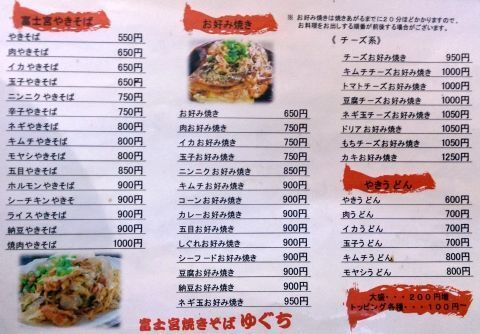 富士宮やきそば
やきそば 550円
肉やきそば 650円
イカやきそば 650円
玉子やきそば 650円
ニンニクやきそば 750円
辛子やきそば 750円
ネギやきそば 800円
キムチやきそば 800円
モヤシやきそば 800円
五目やきそば 850円
ホルモンやきそば 900円
シーチキンやきそば 900円
ライスやきそば 900円
納豆やきそば 900円
焼肉やきそば 1000円
お好み焼き
お好み焼き 650円
肉お好み焼き 750円
イカお好み焼き 750円
玉子お好み焼き 750円
ニンニクお好み焼き 850円
キムチお好み焼き 900円
コーンお好み焼き 900円
カレーお好み焼き 900円
五目お好み焼き 900円
しぐれお好み焼き 900円
シーフードお好み焼き 900円
豆腐お好み焼き 900円
納豆お好み焼き 900円
ネギ玉お好み焼き 950円
※ お好み焼きは焼きあがるまでに20分ほどかかりますので、
お料理をお出しする順番が前後する場合がございます。
《 チーズ系》
チーズお好み焼き 950円
キムチチーズお好み焼き 1000円
トマトチーズお好み焼き 1000円
豆腐チーズお好み焼き 1000円
ネギ玉チーズお好み焼き 1050円
ドリアお好み焼き 1050円
もちチーズお好み焼き 1050円
カキお好み焼き 1250円
やきうどん
やきうどん 600円
肉うどん 700円
イカうどん 700円
玉子うどん 700円
キムチうどん 800円
モヤシうどん 800円
大盛・・・200円増
トッピング各種・・・100円
富士宮焼きそば ゆぐち